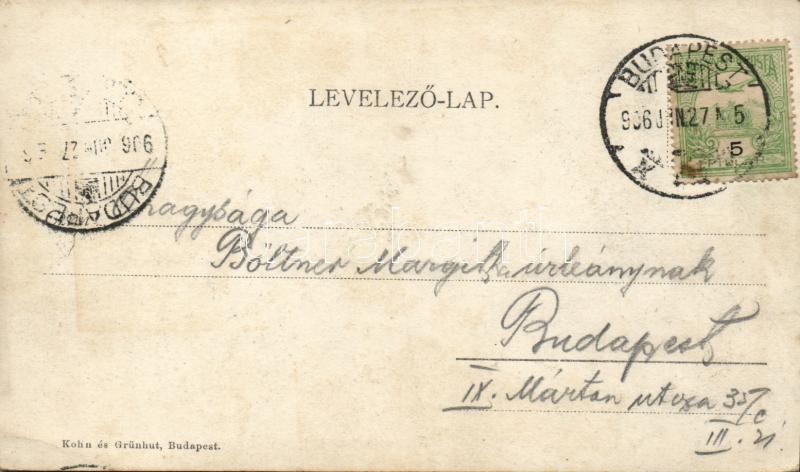 LEVELEZŐ-LAP.
BUDAPEST
906 JAN. 27 N 5
POSTA
5
BUDAPEST
906 JAN 27
nagysága
Böltner Margit úrleánynak
Budapest
IX. Márton utcza 35/c
III. 21.
Kohn és Grünhut, Budapest.